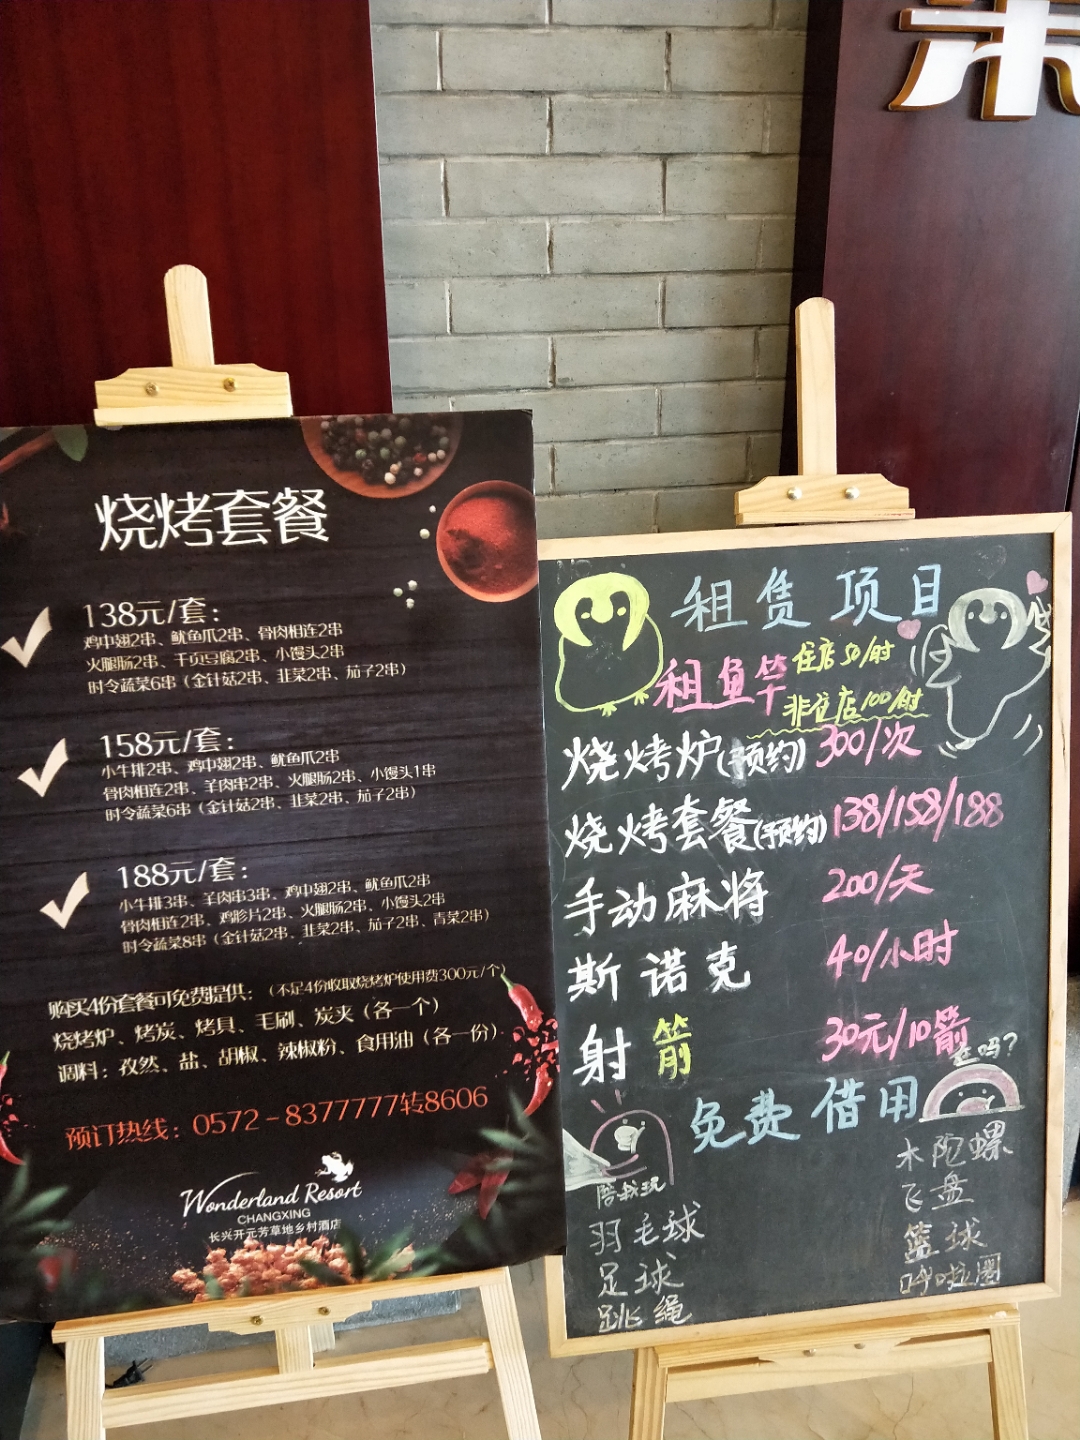 烧烤套餐
138元/套：
鸡中翅2串、鱿鱼爪2串、骨肉相连2串
火腿肠2串、千页豆腐2串、小馒头2串
时令蔬菜6串（金针菇2串、韭菜2串、茄子2串）
158元/套：
小牛排2串、鸡中翅2串、鱿鱼2串
骨肉相连2串、羊肉串2串、火腿肠2串、小馒头1串
时令蔬菜6串（金针菇2串、韭菜2串、茄子2串）
188元/套：
小牛排3串、羊肉串3串、鸡中翅2串、鱿鱼爪2串
骨肉相连2串、鸡胗片2串、火腿肠2串、小馒头2串
时令蔬菜8串（金针菇2串、韭菜2串、茄子2串、青菜2串）
购买4份套餐可免费提供：（不足4份收取烧烤炉使用费300元/个）
烧烤炉、烤炭、烤具、毛刷、炭夹（各一个）
调料：孜然、盐、胡椒、辣椒粉、食用油（各一份）
预订热线：0572-8377777转8606
Wonderland Resort
CHANGXING
长兴开元芳草地乡村酒店
租赁项目
租鱼竿 住店50/时
非住店100/时
烧烤炉(预约) 300/次
烧烤套餐(预约) 138/158/188
手动麻将 200/天
斯诺克 40/小时
射箭 30元/10箭
免费借用
陪我玩
羽毛球
足球
跳绳
木陀螺
飞盘
篮球
呼啦圈